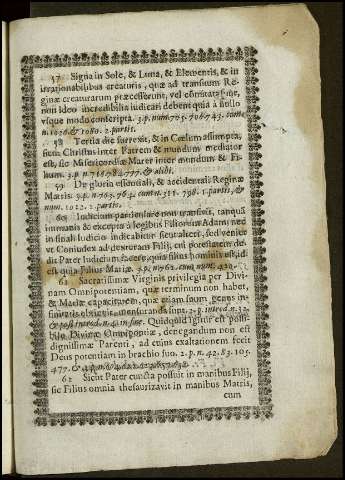 57 Signa in Sole, & Luna, & Elementis, & in
irrationabilibus creaturis, quæ ad transitum Re-
ginæ creaturarum præcesserunt, vel comitata sunt,
non ideo incredibilia iudicari debent quia à nullo
vsque modo conscripta. 3.p.num.705.706 743. cum
n.1036.& 1080. 2. partis.
58 Tertia die surrexit, & in Cœlum assumpta,
sicut Christus inter Patrem & mundum mediator
est, sic Misericordiæ Mater inter mundum & Fi-
lium. 3.p.n 716.784.777. & alibi.
59 De gloria essentiali, & accidentali Reginæ
Matris. 3.p. n.763.764. cum n.311. 798. 1. partis, &
num. 1022. 2. partis.
60 Iudicium particulare non transivit, tanquã
immunis & excepta à legibus Filiorum Adam: nec
in finali Iudicio iudicabitur sicut alteri, sed veniet
vt Coniudex ad dexteram Filij, cui potestatem de-
dit Pater Iudicium facere, quia filius hominis est, id
est quia Filius Mariæ. 3.p.n.762. cum num. 420.
61 Sacratissimæ Virginis privilegia per Divi-
nam Omnipotentiam, quæ terminum non habet,
& Mariæ capacitatem, quæ etiam suum genus in-
finitatis obtinet, mensuranda
Quidquid igitur est possi-
bile Divinæ Omnipotẽtiæ, denegandum non est
dignissimæ Parenti, ad cuius exaltationem fecit
Deus potentiam in brachio suo. 2.p.n.42. 83. 103.
477.
62 Sicut Pater cuncta possuit in manibus Filij,
sic Filius omnia thesaurizavit in manibus Matris,
cum